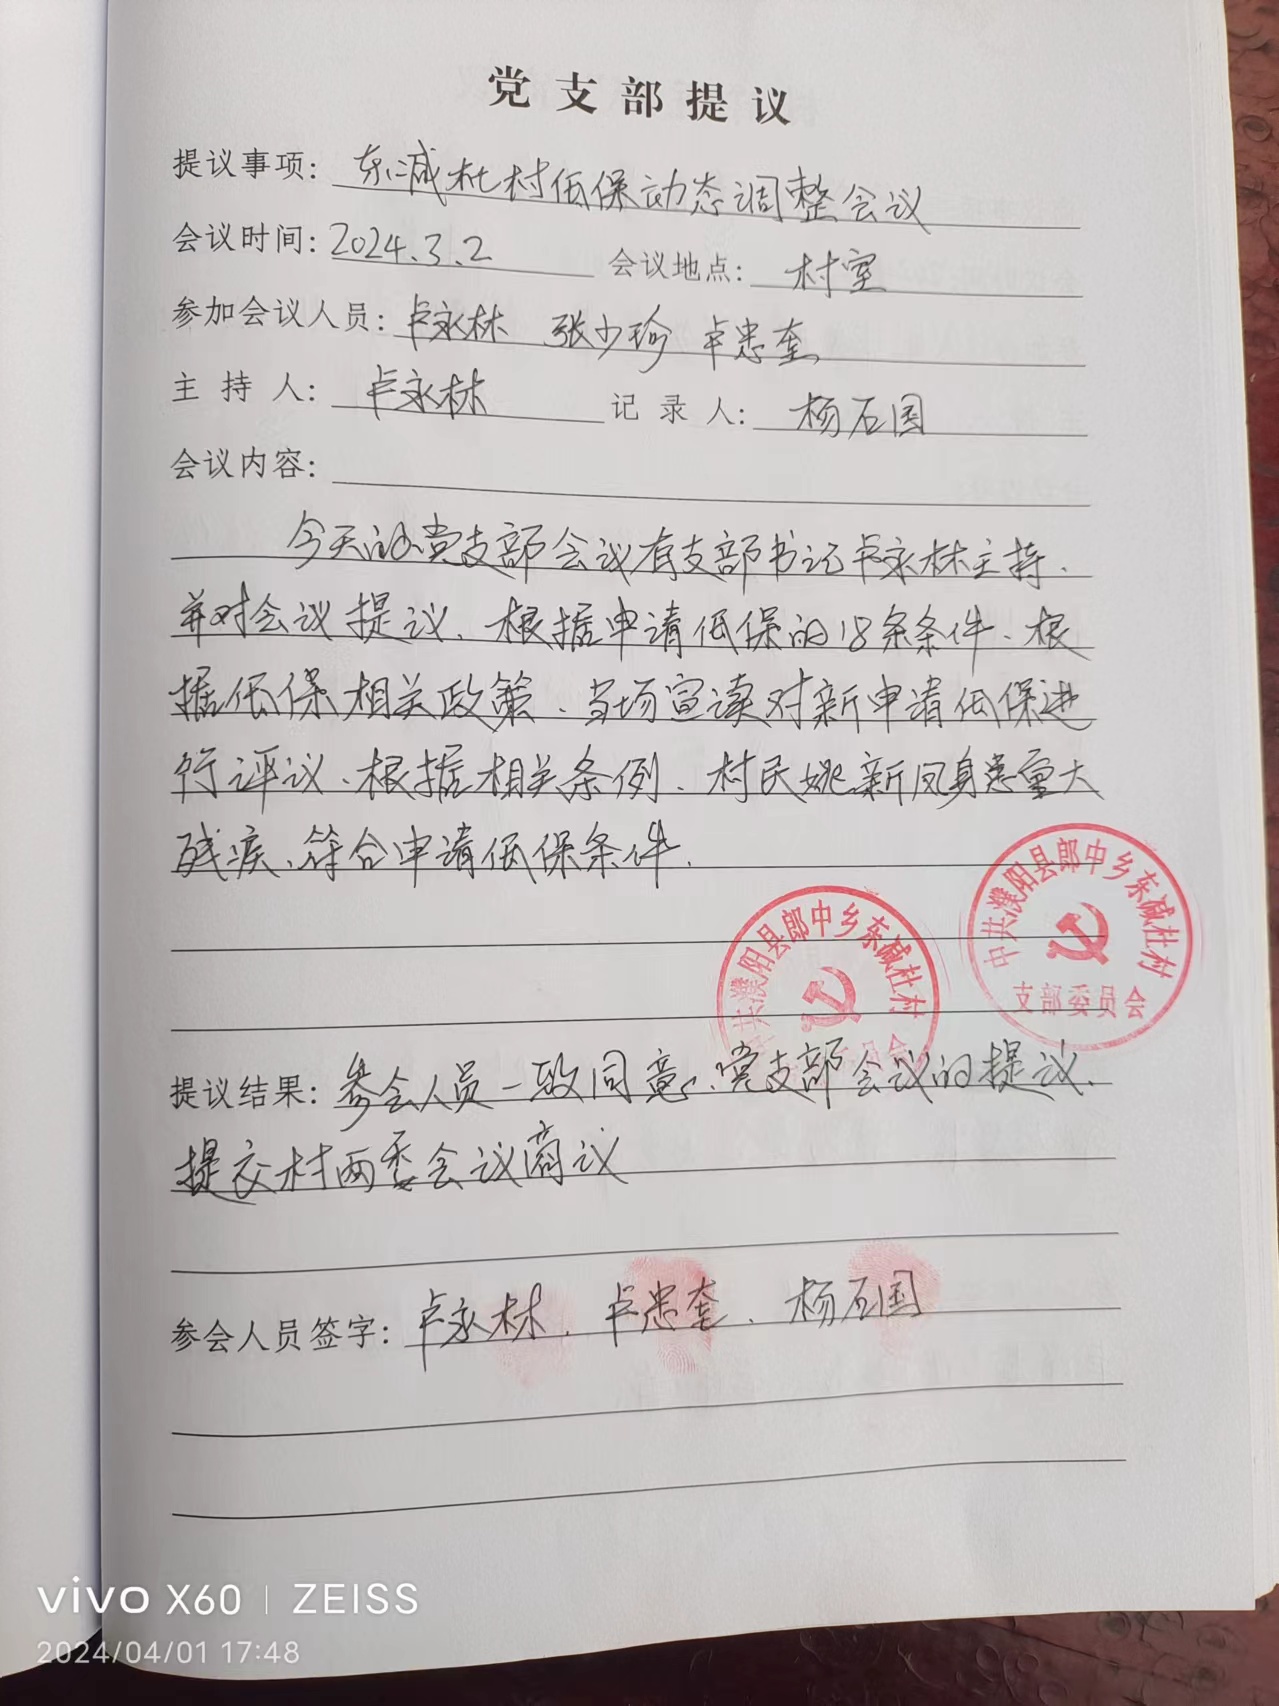 党支部提议
提议事项: 东减杜村低保动态调整会议
会议时间: 2024.3.2 会议地点: 村室
参加会议人员: 卢永林 张少珍 卢忠奎
主持人: 卢永林 记录人: 杨石国
会议内容:
今天的党支部会议有支部书记卢永林主持.
并对会议提议、根据申请低保的18条条件、根
据低保相关政策、当场宣读对新申请低保进
行评议、根据相关条例、村民姚新凤身患重大
残疾、符合申请低保条件.
中共濮阳县郎中乡东减杜村
中共濮阳县郎中乡东减杜村
支部委员会
提议结果: 参会人员一致同意、党支部会议的提议、
提交村两委会议商议
参会人员签字: 卢永林、卢忠奎、杨石国
vivo X60 | ZEISS
2024/04/01 17:48